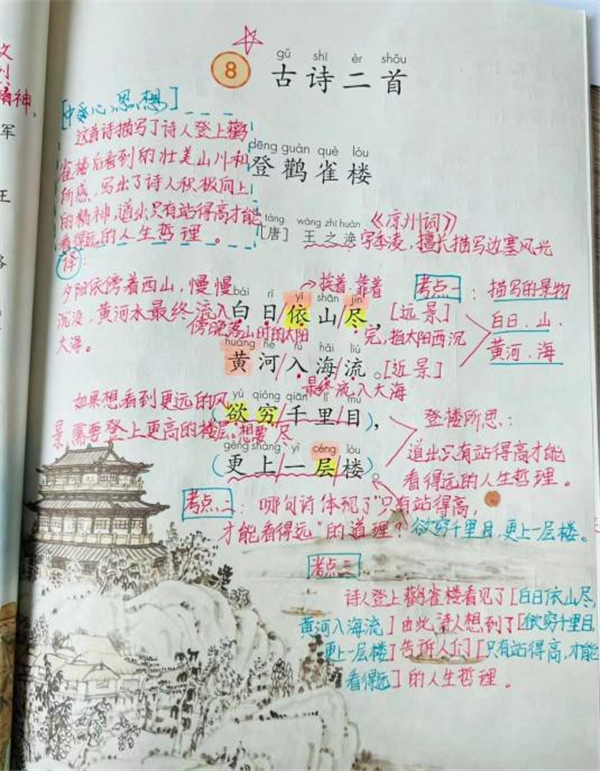 gǔ shī èr shǒu
8 古诗二首
[中心思想]
这首诗描写了诗人登上鹳
雀楼后看到的壮美山川和
所感，写出了诗人积极向上
的精神，道出只有站得高才能
看得远的人生哲理。
dēng guàn què lóu
登鹳雀楼
táng wáng zhī huàn
[唐] 王之涣
《凉州词》
字季凌，擅长描写边塞风光
译:
夕阳依傍着西山，慢慢
沉没，黄河水最终流入
大海。
挨着.靠着
bái rì yī shān jìn
白日依山尽，
[远景]
傍晚落山时的太阳
完,指太阳西沉
huáng hé rù hǎi liú
黄河入海流。
[近景]
最终流入大海
考点一:
描写的景物
白日、山、
黄河、海
如果想看到更远的风
景,需要登上更高的楼层。
yù qióng qiān lǐ mù
欲穷千里目，
想要 尽
gèng shàng yī céng lóu
更上一层楼。
登楼所思:
道出只有站得高才能
看得远的人生哲理。
考点二: 哪句诗体现了"只有站得高,
才能看得远"的道理? 欲穷千里目,更上一层楼。
考点三
诗人登上鹳雀楼看见了[白日依山尽,
黄河入海流]由此,诗人想到了[欲穷千里目
更上一层楼]告诉人们[只有站得高,才能
看得远]的人生哲理。
神。
军
王